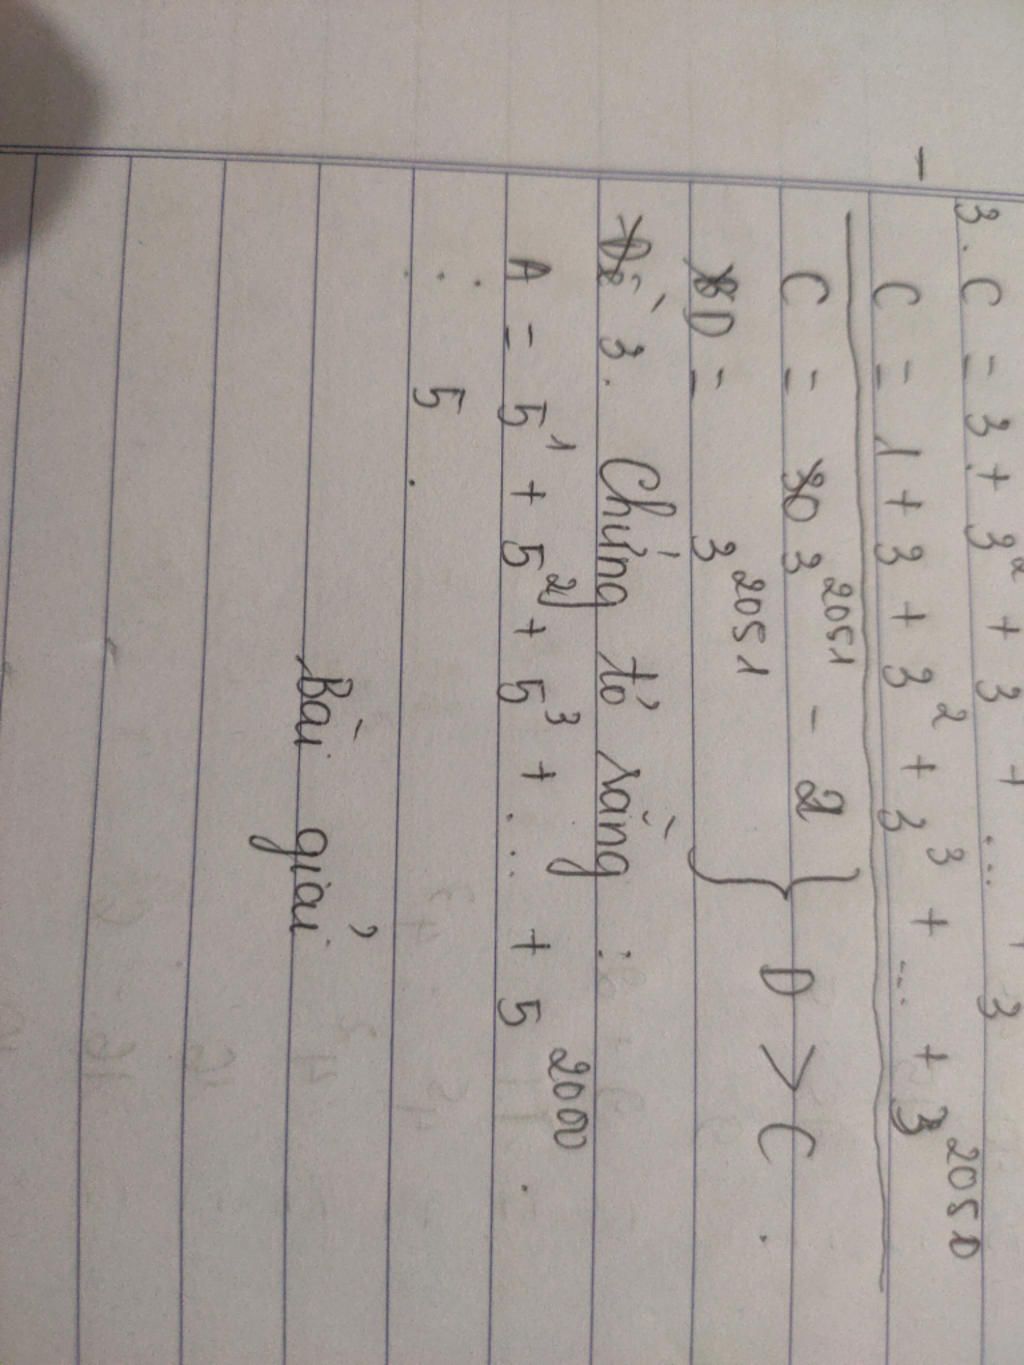 3.C = 3 + 3² + 3 + ... + 3
- C = 1 + 3 + 3² + 3³ + ... + 3²⁰⁵⁰
C = 3²⁰⁵¹ - 1 } D > C.
D = 3²⁰⁵¹
Đề 3. Chứng tỏ rằng :
A = 5¹ + 5² + 5³ + ... + 5²⁰⁰⁰.
⋮ 5.
Bài giải